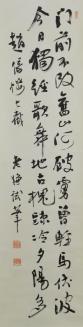 門前不改舊山河破虜曾輕馬伏波
今日獨經歌舞地古槐疎冷夕陽多
趙倚樓七截 老 試筆